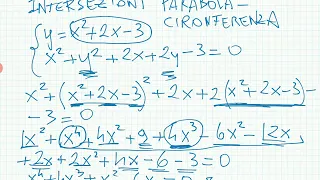 INTERSEZIONI PARABOLA-
CIRONFERENZA
{ y = x² + 2x - 3
{ x² + y² + 2x + 2y - 3 = 0
x² + (x² + 2x - 3)² + 2x + 2(x² + 2x - 3) -
- 3 = 0
x² + x⁴ + 4x² + 9 + 4x³ - 6x² - 12x
+ 2x + 2x² + 4x - 6 - 3 = 0